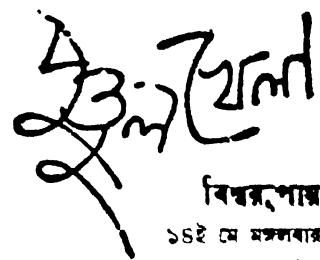 পুতুল খেলা
বিশ্বরূপায়
১৪ই মে মঙ্গলবার